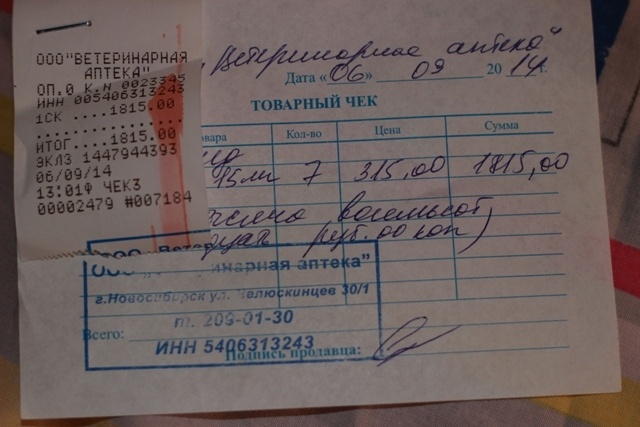 ООО"ВЕТЕРИНАРНАЯ
АПТЕКА"
ОП.0 К.Н 0023345
ИНН 005406313243
1СК ....1815.00
ИТОГ....1815.00
ЭКЛЗ 1447944393
06/09/14
13:01Ф ЧЕК3
00002479 #007184
"Ветеринарная аптека"
Дата «06» 09 2014 г.
ТОВАРНЫЙ ЧЕК
овара Кол-во Цена Сумма
15мл 7 315,00 1815,00
восемьсот
руб. 00 коп)
ООО Ветер
ООО „ инарная аптека"
г.Новосибирск ул. Челюскинцев 30/1
т. 209-01-30
Всего:
ИНН 5406313243
Подпись продавца: